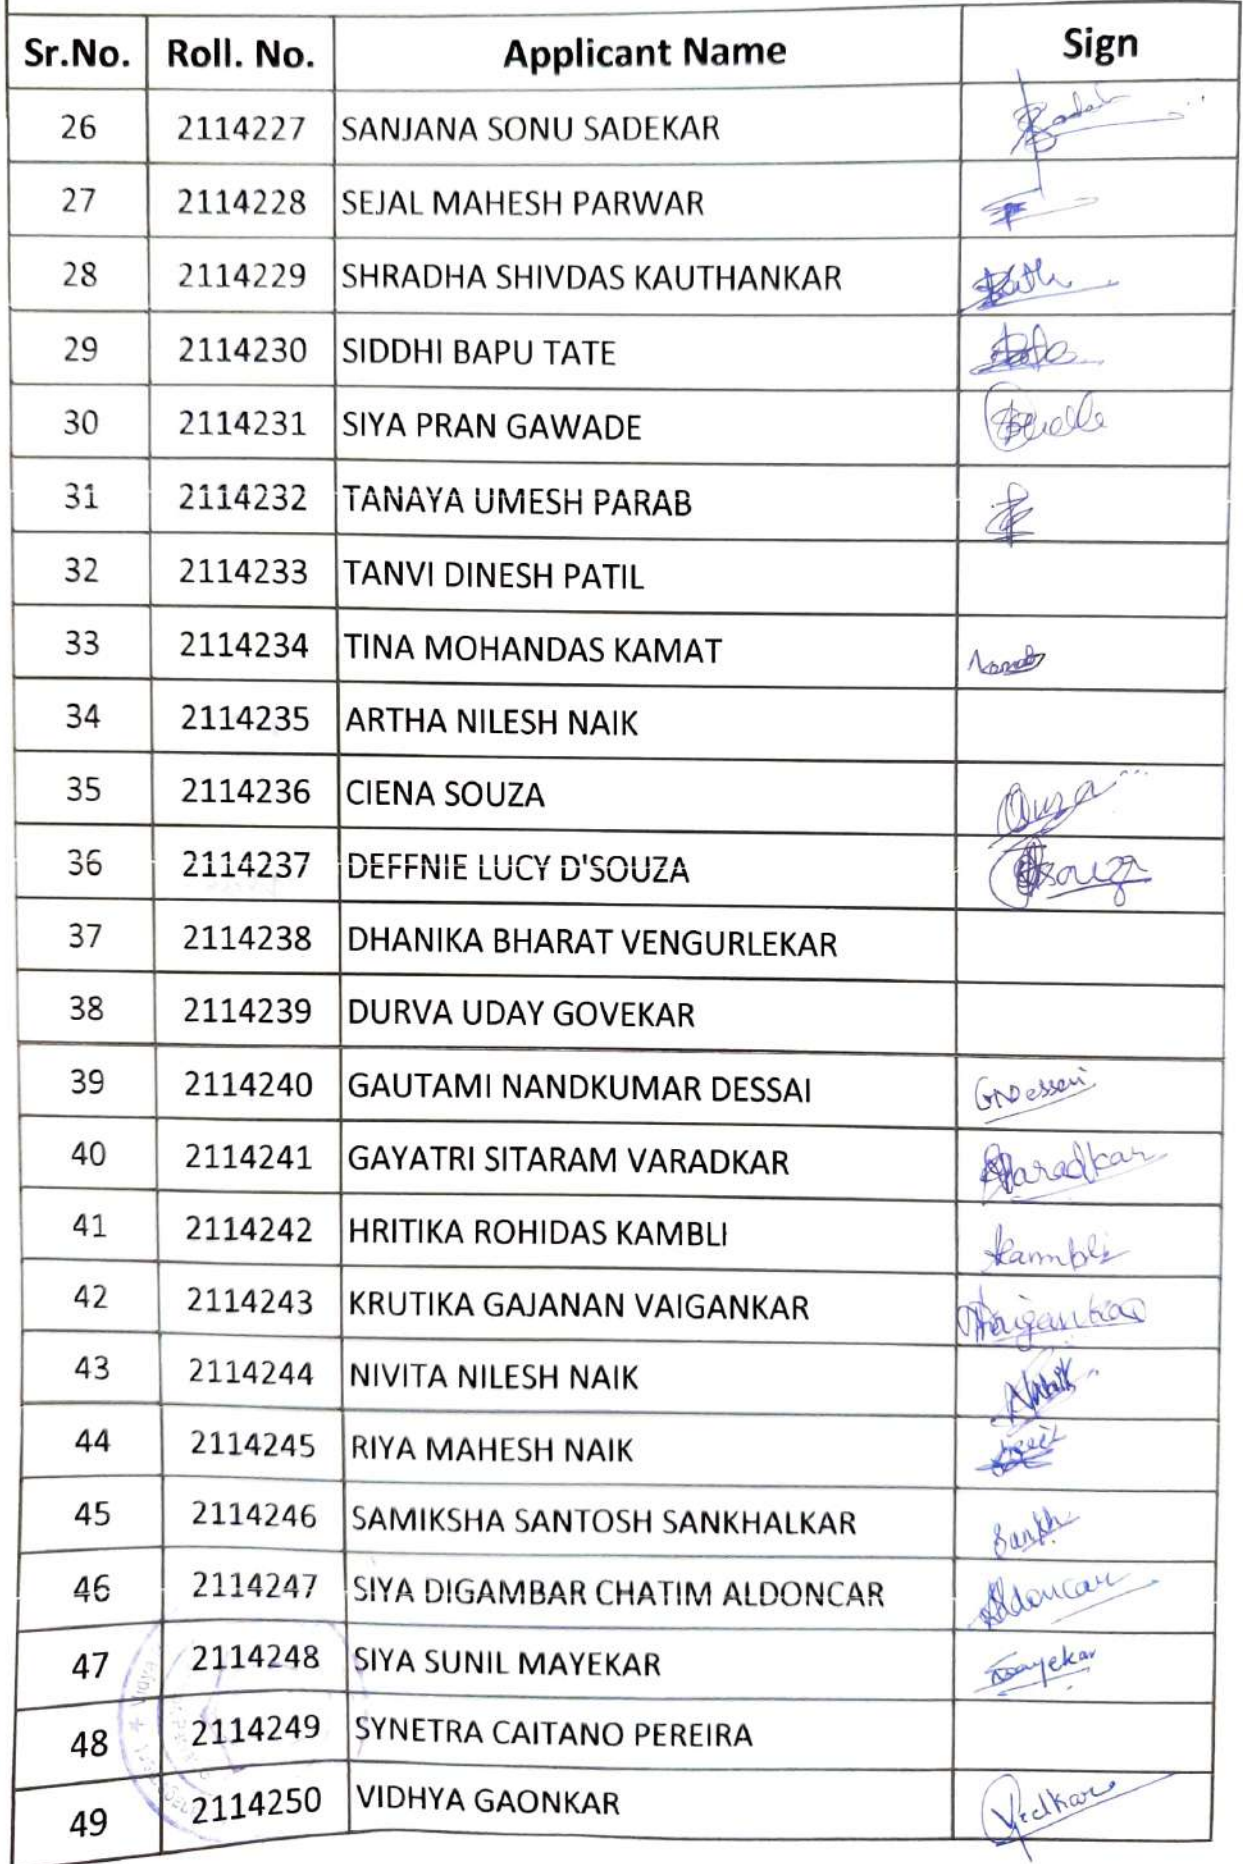 Sr.No. Roll. No. Applicant Name Sign
26 2114227 SANJANA SONU SADEKAR
27 2114228 SEJAL MAHESH PARWAR
28 2114229 SHRADHA SHIVDAS KAUTHANKAR
29 2114230 SIDDHI BAPU TATE
30 2114231 SIYA PRAN GAWADE
31 2114232 TANAYA UMESH PARAB
32 2114233 TANVI DINESH PATIL
33 2114234 TINA MOHANDAS KAMAT
34 2114235 ARTHA NILESH NAIK
35 2114236 CIENA SOUZA
36 2114237 DEFFNIE LUCY D'SOUZA Dsouza
37 2114238 DHANIKA BHARAT VENGURLEKAR
38 2114239 DURVA UDAY GOVEKAR
39 2114240 GAUTAMI NANDKUMAR DESSAI GNDessai
40 2114241 GAYATRI SITARAM VARADKAR Varadkar
41 2114242 HRITIKA ROHIDAS KAMBLI Kambli
42 2114243 KRUTIKA GAJANAN VAIGANKAR Vaigankar
43 2114244 NIVITA NILESH NAIK Naik
44 2114245 RIYA MAHESH NAIK
45 2114246 SAMIKSHA SANTOSH SANKHALKAR Sankh
46 2114247 SIYA DIGAMBAR CHATIM ALDONCAR Aldoncar
47 2114248 SIYA SUNIL MAYEKAR Mayekar
48 2114249 SYNETRA CAITANO PEREIRA
49 2114250 VIDHYA GAONKAR
Vidya